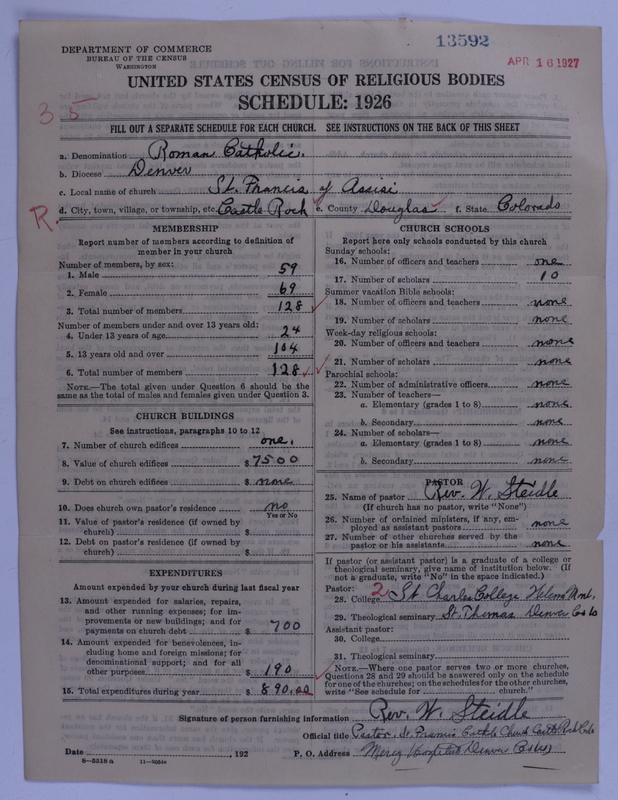 13592
APR 16 1927
DEPARTMENT OF COMMERCE
BUREAU OF THE CENSUS
WASHINGTON
UNITED STATES CENSUS OF RELIGIOUS BODIES
SCHEDULE: 1926
35
FILL OUT A SEPARATE SCHEDULE FOR EACH CHURCH. SEE INSTRUCTIONS ON THE BACK OF THIS SHEET
a. Denomination Roman Catholic.
b. Diocese Denver
c. Local name of church St. Francis of Assisi
R.
d. City, town, village, or township, etc. Castle Rock e. County Douglas f. State Colorado
MEMBERSHIP
Report number of members according to definition of
member in your church
Number of members, by sex:
1. Male 59
2. Female 69
3. Total number of members 128
Number of members under and over 13 years old:
4. Under 13 years of age 24
5. 13 years old and over 104
6. Total number of members 128
NOTE.—The total given under Question 6 should be the
same as the total of males and females given under Question 3.
CHURCH BUILDINGS
See instructions, paragraphs 10 to 12
7. Number of church edifices one.
8. Value of church edifices $ 7500
9. Debt on church edifices $ none
10. Does church own pastor's residence no
Yes or No
11. Value of pastor's residence (if owned by
church) $
12. Debt on pastor's residence (if owned by
church) $
EXPENDITURES
Amount expended by your church during last fiscal year
13. Amount expended for salaries, repairs,
and other running expenses; for im-
provements or new buildings; and for
payments on church debt $ 700
14. Amount expended for benevolences, in-
cluding home and foreign missions; for
denominational support; and for all
other purposes $ 190
15. Total expenditures during year $ 890.00
CHURCH SCHOOLS
Report here only schools conducted by this church
Sunday schools:
16. Number of officers and teachers one
17. Number of scholars 10
Summer vacation Bible schools:
18. Number of officers and teachers none
19. Number of scholars none
Week-day religious schools:
20. Number of officers and teachers none
21. Number of scholars none
Parochial schools:
22. Number of administrative officers none
23. Number of teachers—
a. Elementary (grades 1 to 8) none
b. Secondary none
24. Number of scholars—
a. Elementary (grades 1 to 8) none
b. Secondary none
PASTOR
25. Name of pastor Rev. W. Steidle
(If church has no pastor, write "None")
26. Number of ordained ministers, if any, em-
ployed as assistant pastors none
27. Number of other churches served by the
pastor or his assistants none
If pastor (or assistant pastor) is a graduate of a college or
theological seminary, give name of institution below. (If
not a graduate, write "No" in the space indicated.)
Pastor: 2
28. College St Charles College Helena Mnt.
29. Theological seminary St. Thomas Denver Colo
Assistant pastor:
30. College
31. Theological seminary
NOTE.—Where one pastor serves two or more churches,
Questions 28 and 29 should be answered only on the schedule
for one of the churches; on the schedules for the other churches,
write "See schedule for church."
Signature of person furnishing information Rev. W. Steidle
Official title Pastor St Francis Catholic Church Castle Rock Colo
Date , 192 P. O. Address Mercy Hospital Denver Colo
8—5318 a